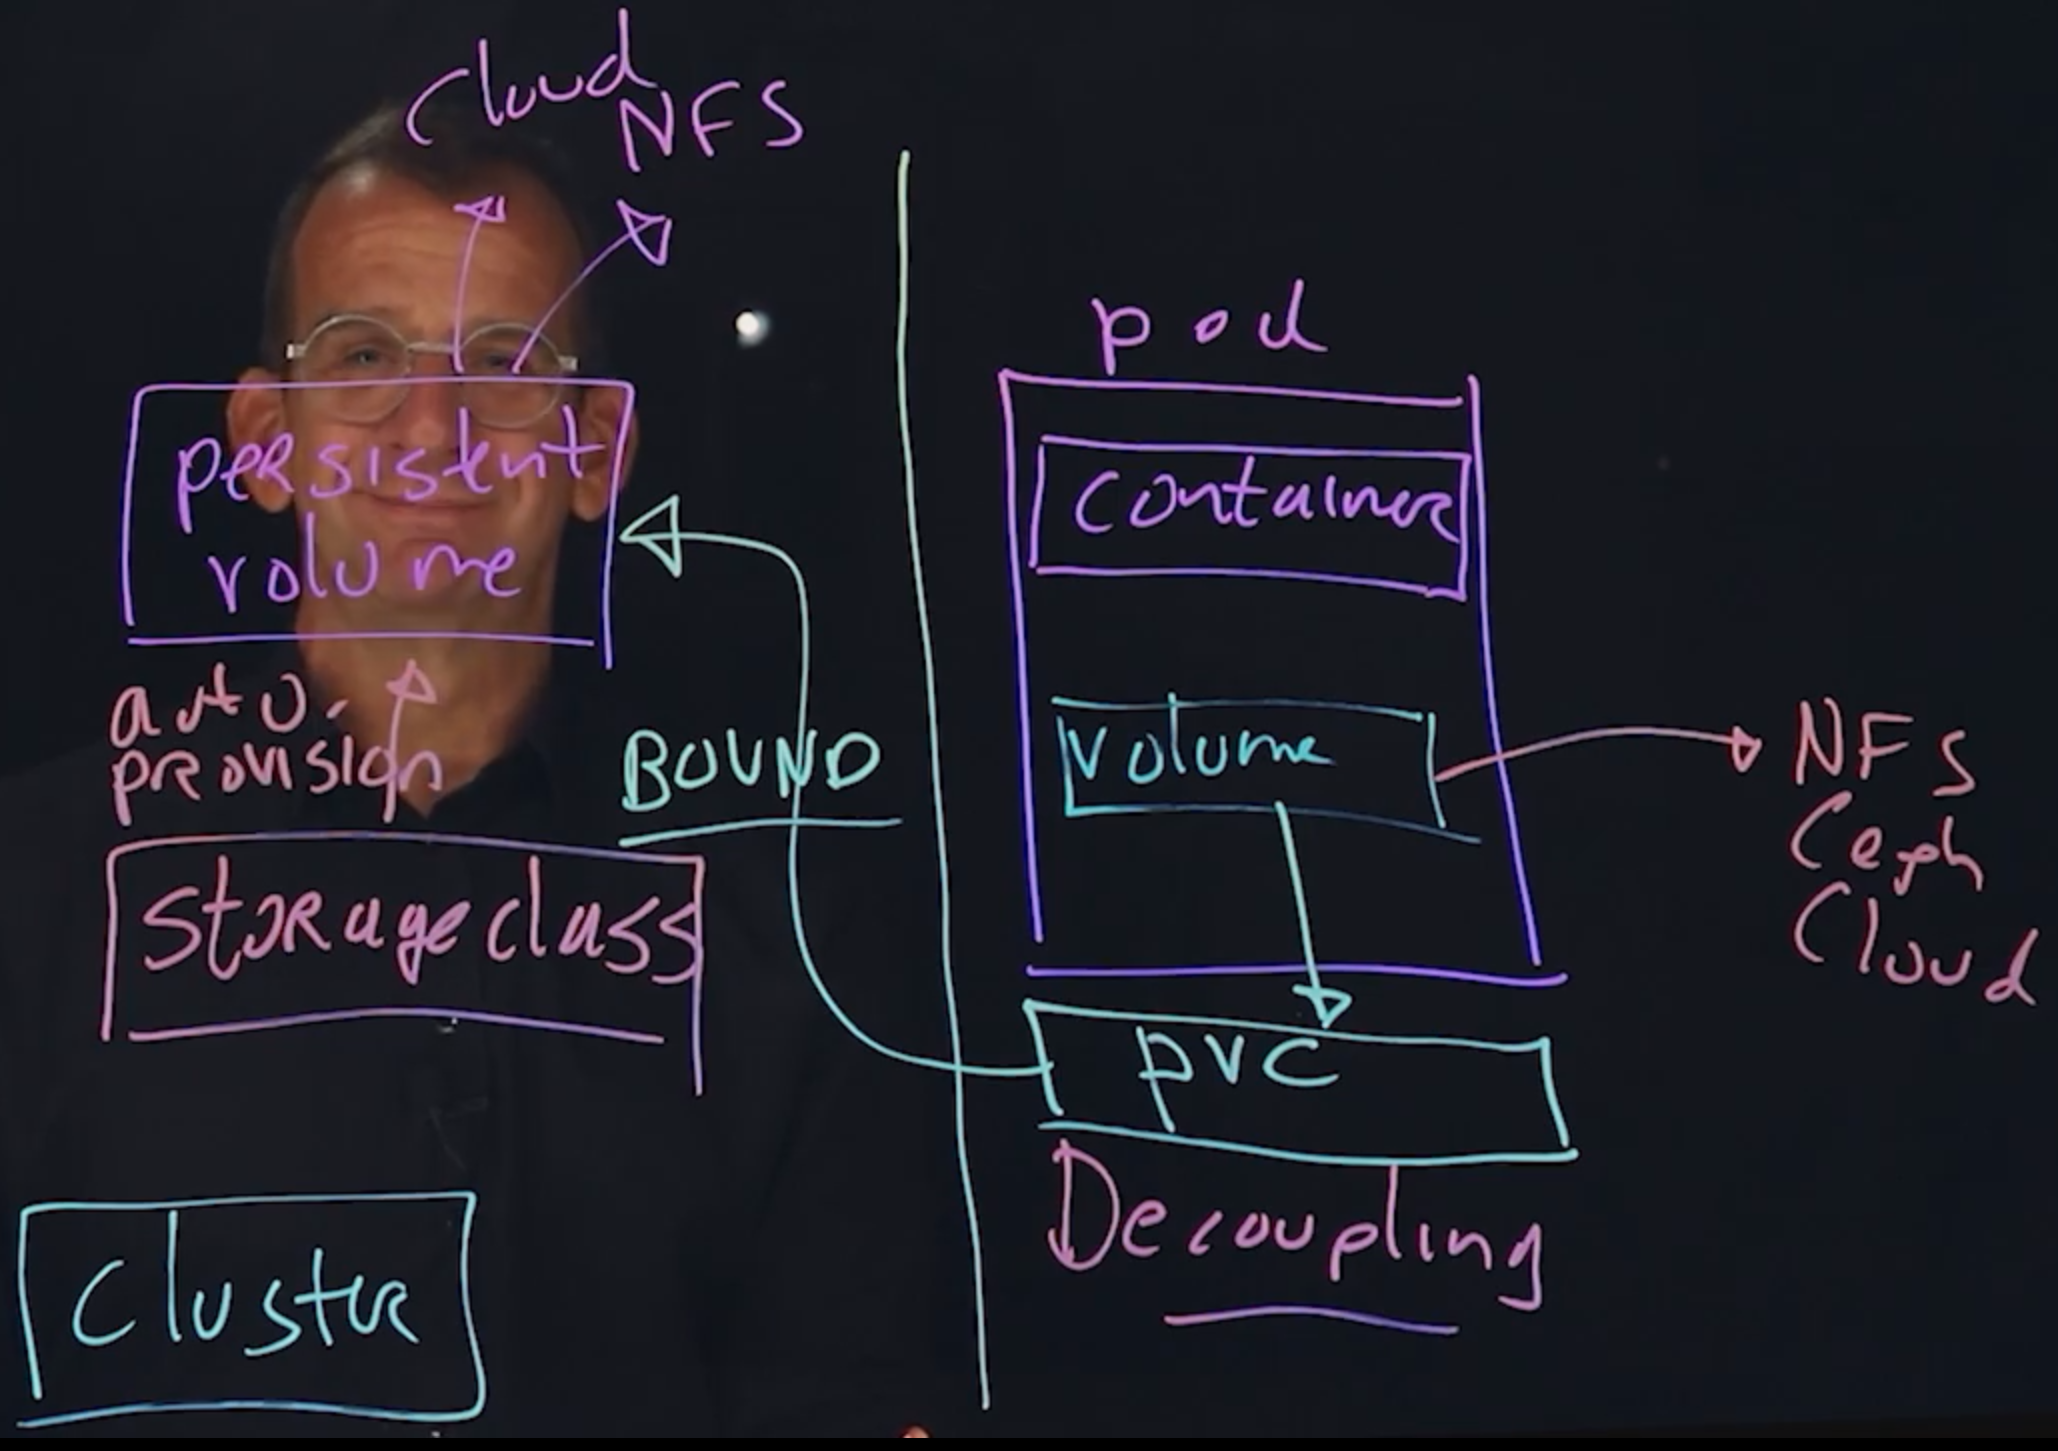 Cloud
NFS
persistent
volume
auto.
provision
storageclass
Cluster
BOUND
pod
container
volume
NFS
Ceph
Cloud
pvc
Decoupling